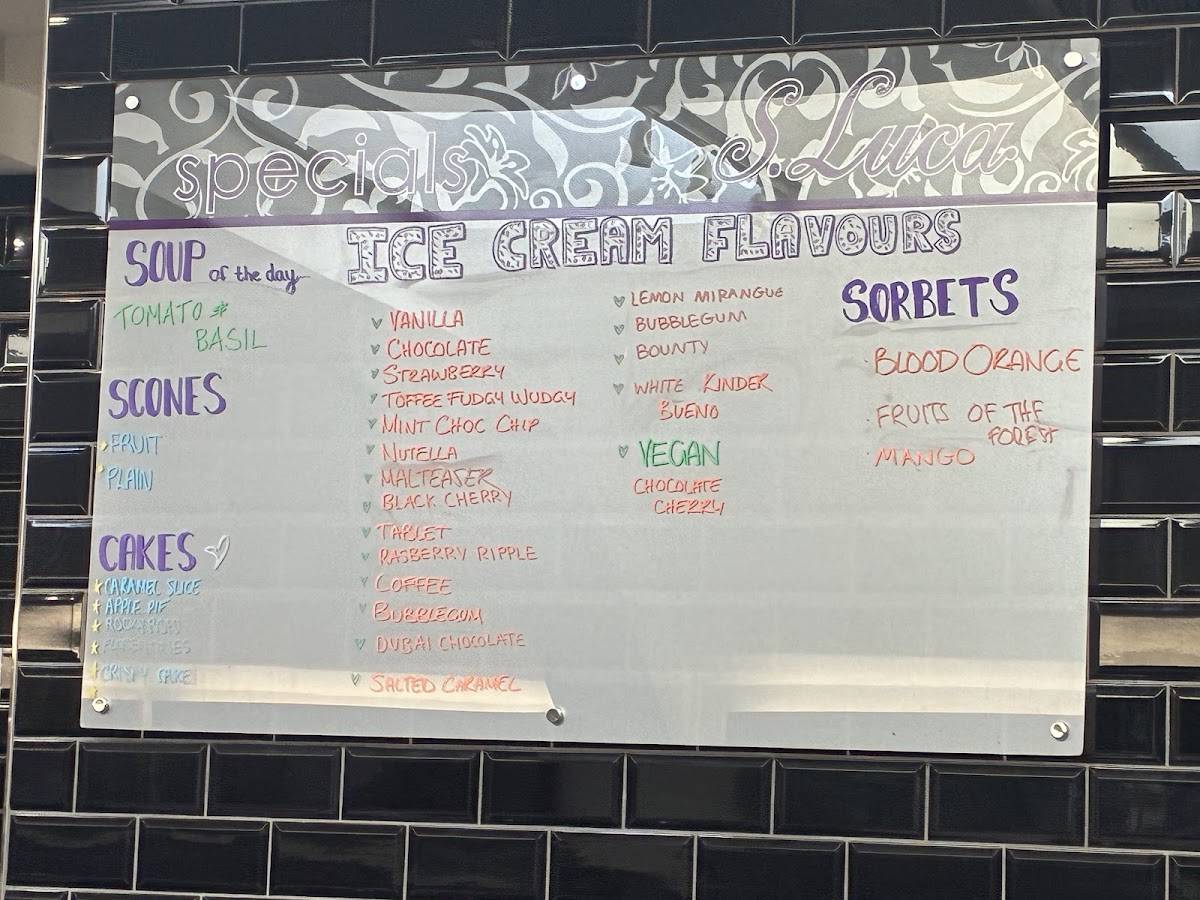 specials
S. Luca
SOUP of the day
TOMATO &
BASIL
SCONES
FRUIT
PLAIN
CAKES
CARAMEL SLICE
APPLE PIE
CRISPY CAKE
ICE CREAM FLAVOURS
VANILLA
CHOCOLATE
STRAWBERRY
TOFFEE FUDGY WUDGY
MINT CHOC CHIP
NUTELLA
MALTEASER
BLACK CHERRY
TABLET
RASBERRY RIPPLE
COFFEE
BUBBLEGUM
DUBAI CHOCOLATE
SALTED CARAMEL
LEMON MIRANGUE
BUBBLEGUM
BOUNTY
WHITE KINDER
BUENO
VEGAN
CHOCOLATE
CHERRY
SORBETS
BLOOD ORANGE
FRUITS OF THE
FOREST
MANGO